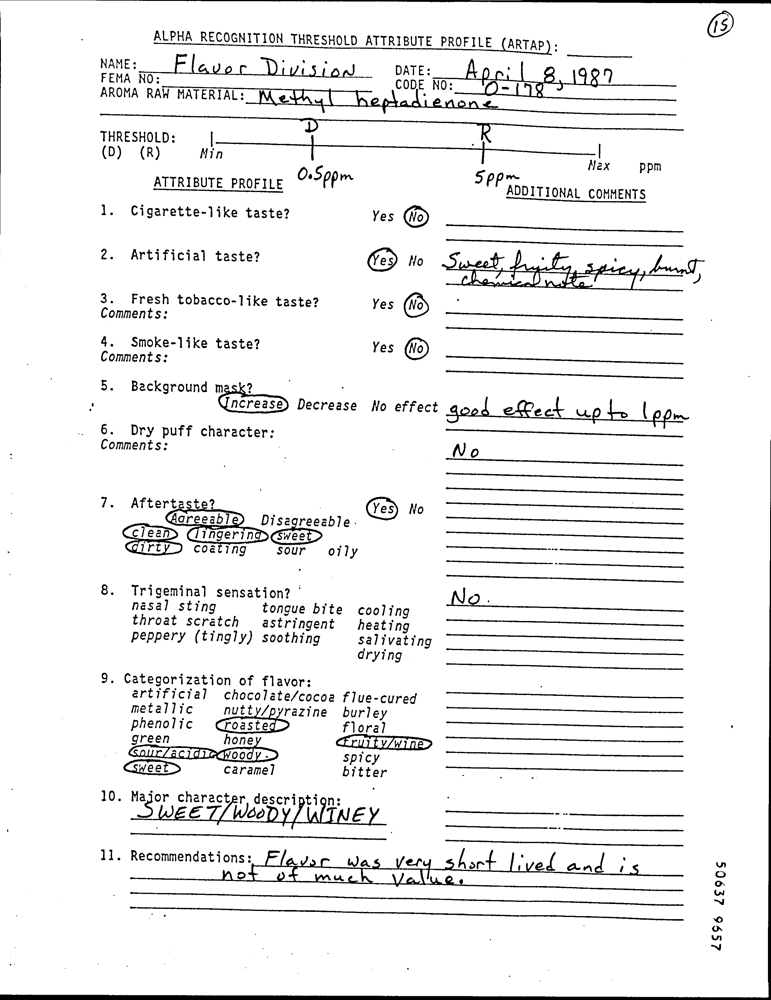 15
ALPHA RECOGNITION THRESHOLD ATTRIBUTE PROFILE (ARTAP):
NAME: Flavor Division DATE: April 8, 1987
FEMA NO: CODE NO: O-178
AROMA RAW MATERIAL: Methyl heptadienone
D R
THRESHOLD:
(D) (R) Min Max ppm
0.5ppm 5ppm
ATTRIBUTE PROFILE ADDITIONAL COMMENTS
1. Cigarette-like taste? Yes No
2. Artificial taste? Yes No Sweet, fruity, spicy, burnt,
chemical note
3. Fresh tobacco-like taste? Yes No
Comments:
4. Smoke-like taste? Yes No
Comments:
5. Background mask?
Increase Decrease No effect good effect up to 1ppm
6. Dry puff character:
Comments: No
7. Aftertaste? Yes No
Agreeable Disagreeable
clean lingering sweet
dirty coating sour oily
8. Trigeminal sensation? No.
nasal sting tongue bite cooling
throat scratch astringent heating
peppery (tingly) soothing salivating
drying
9. Categorization of flavor:
artificial chocolate/cocoa flue-cured
metallic nutty/pyrazine burley
phenolic roasted floral
green honey fruity/wine
sour/acidic woody spicy
sweet caramel bitter
10. Major character description:
SWEET/WOODY/WINEY
11. Recommendations: Flavor was very short lived and is
not of much value.
50637 9657